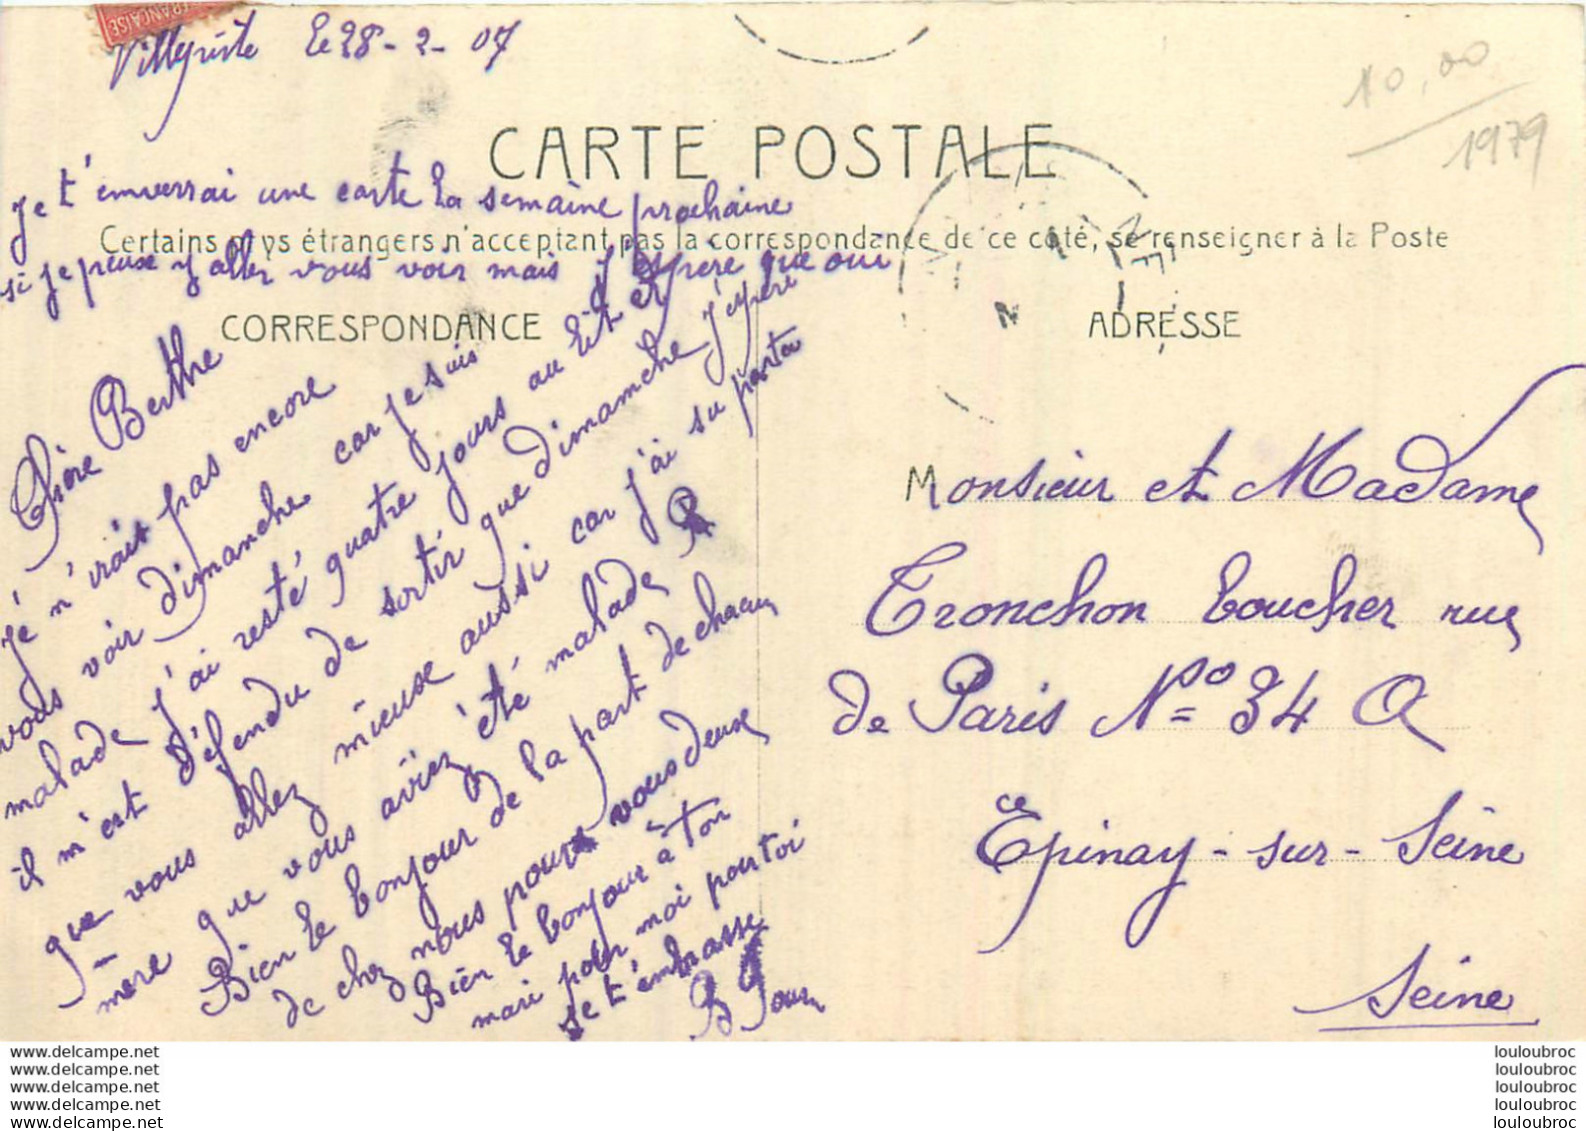 FRANÇAISE
le 28-2-07
10,00
1979
CARTE POSTALE
Je t'enverrai une carte la semaine prochaine
Certains pays étrangers n'acceptant pas la correspondance de ce côté, se renseigner à la Poste
si je peuse y aller vous voir mais j'espère que oui
CORRESPONDANCE
Chère Berthe
Je n'irait pas encore
vous voir dimanche car je suis
malade j'ai resté quatre jours au lit et
il m'est défendu de sortir que dimanche j'espère
que vous allez mieuse aussi car j'ai su par ta
mère que vous aviez été malade
Bien le bonjour de la part de chacun
de chez nous pour vous deuse
Bien le bonjour à ton
mari pour moi pour toi
Je t'embrasse
B
ADRESSE
Monsieur et Madame
Tronchon boucher rue
de Paris No 34 A
Epinay-sur-Seine
Seine
www.delcampe.net
www.delcampe.net
www.delcampe.net
www.delcampe.net
www.delcampe.net
louloubroc
louloubroc
louloubroc
louloubroc
louloubroc